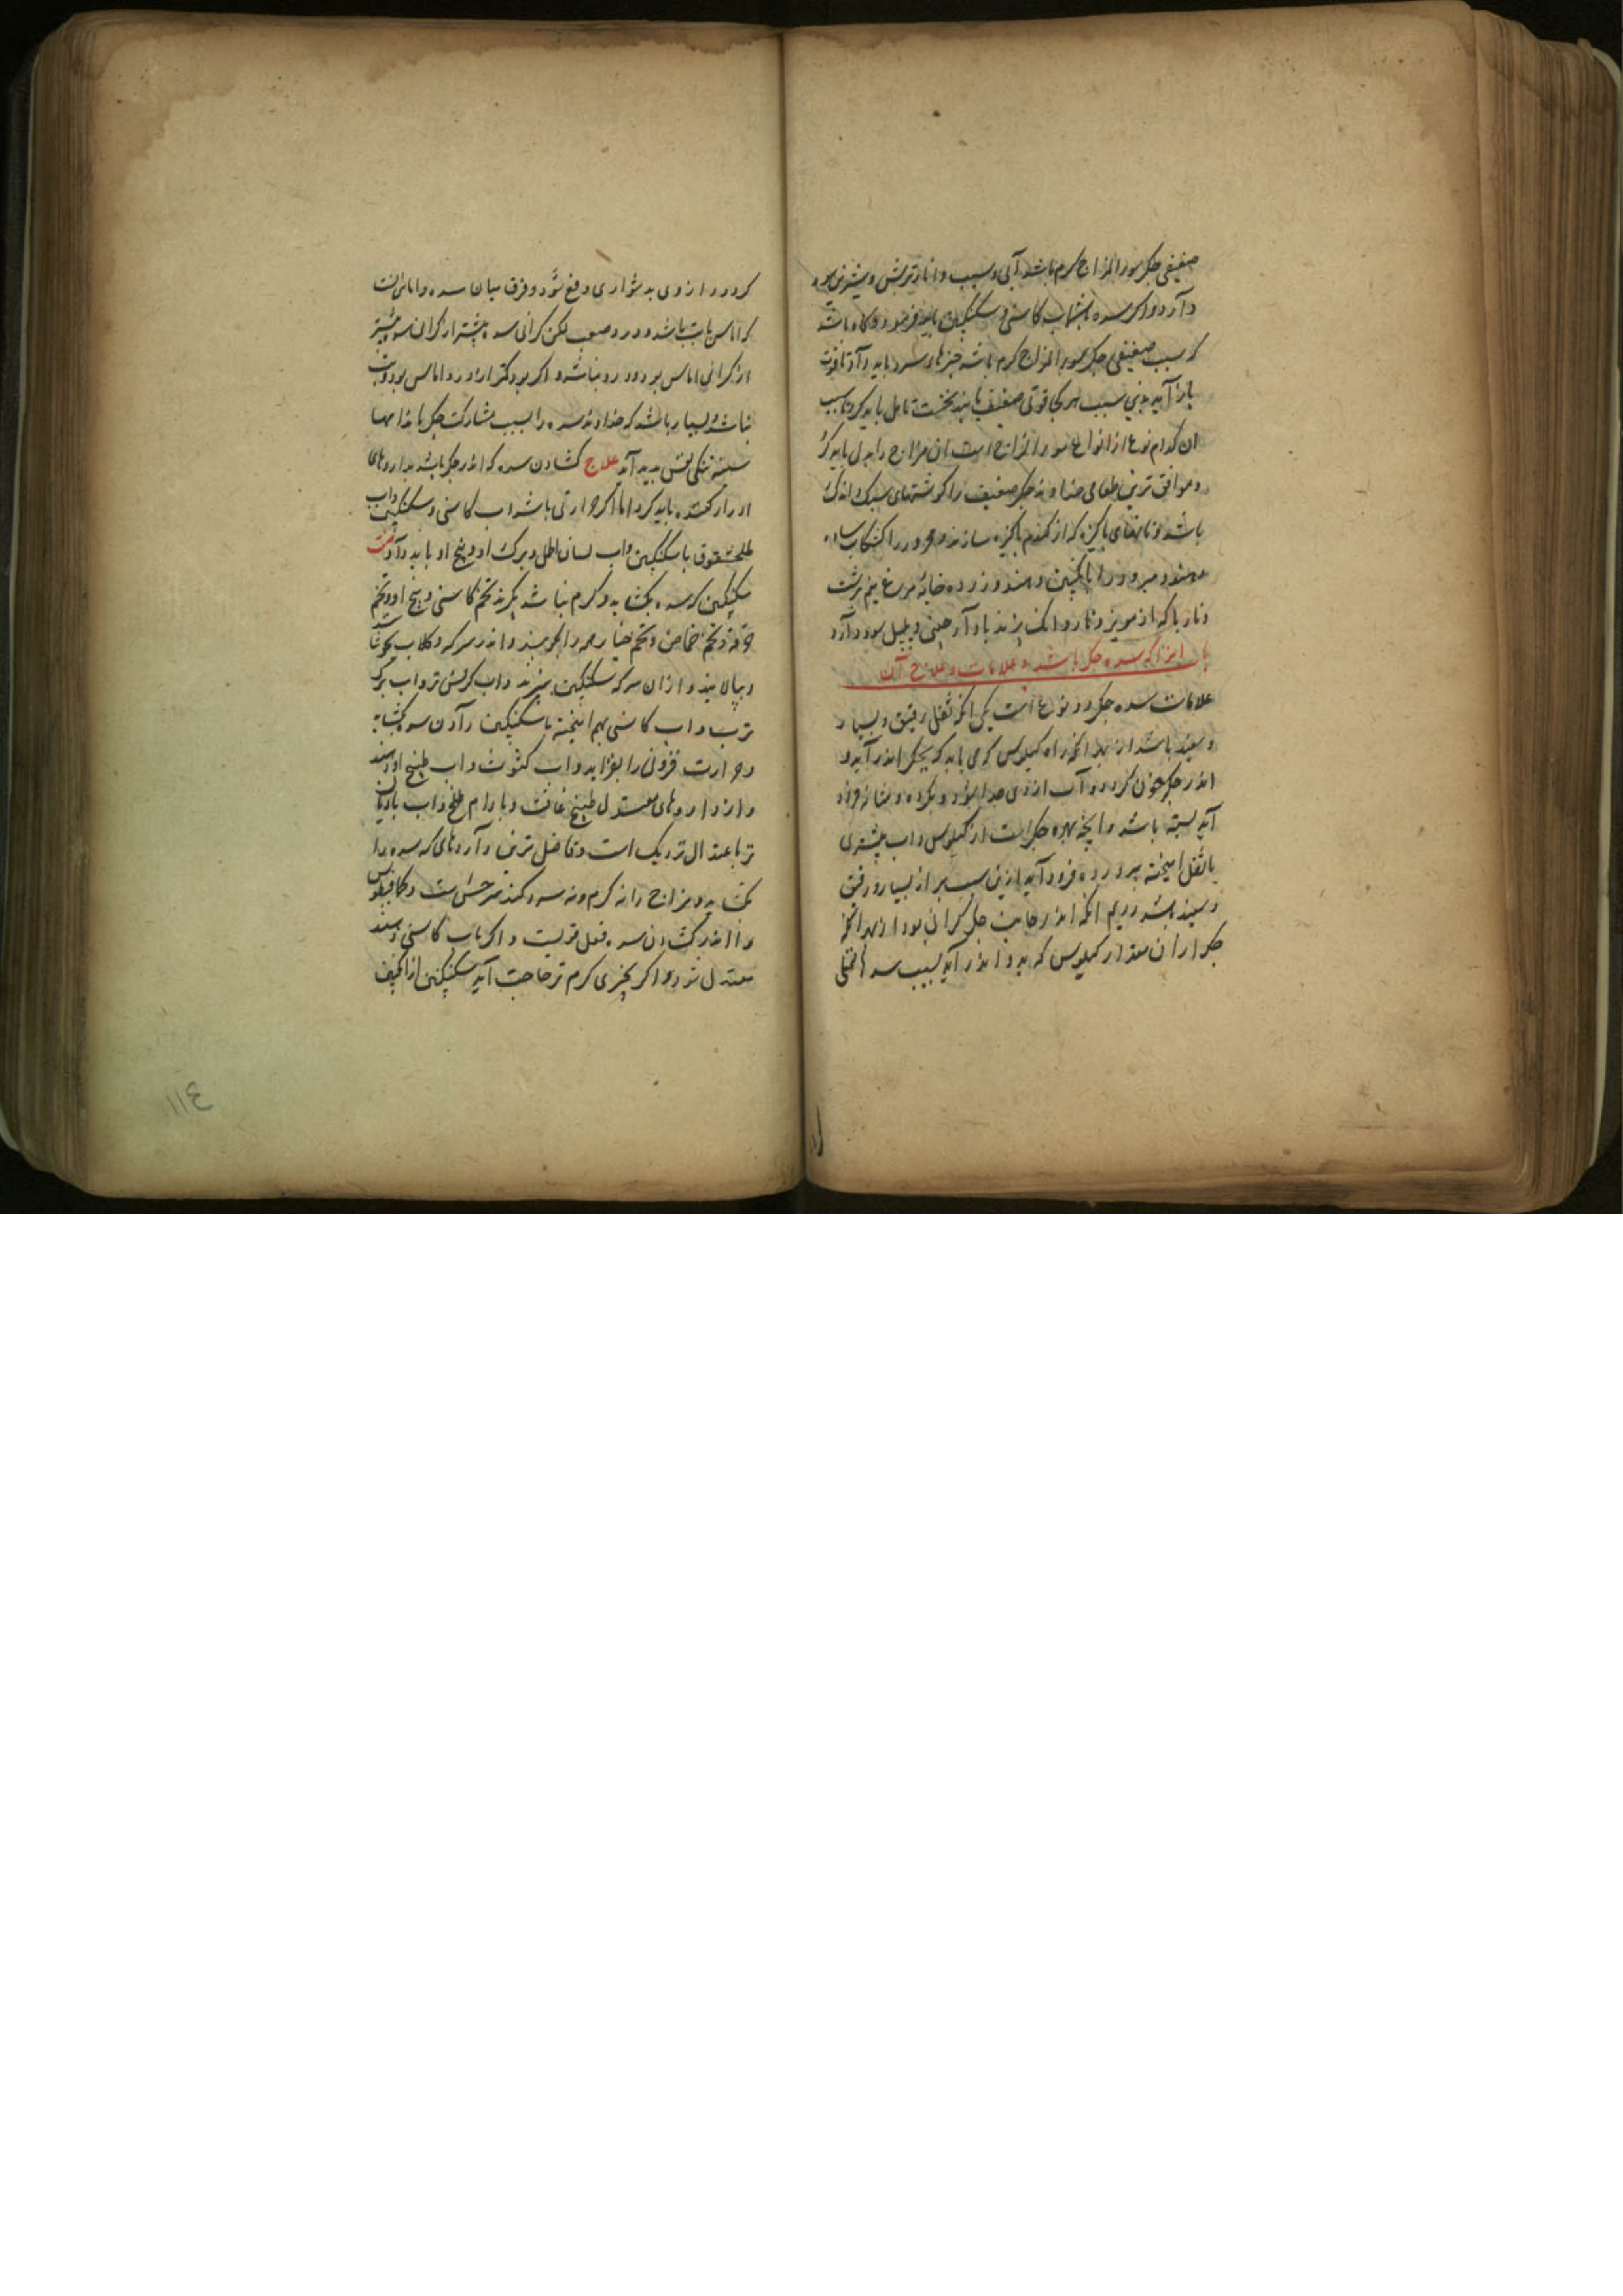 ضعیفی جکر سوء المزاج کرم باشد آبی و سیب و انار ترش و شیرین سود
دارد و اکر سده باشد آب کاسنی و سکنکبین باید فرمود و کاه باشد
که سبب ضعیفی جکر سوء المزاج کرم باشد چیزهاء سرد باید داد تا قوت
باز آید بدین سبب هر کجا قوتی ضعیف یابند نخست تامل باید کرد تا سبب
ان کدام نوع از انواع سوء المزاج است ان مزاج را بدل باید کرد
و موافق ترین طعامی خداوند جکر ضعیف را کوشتهای سبک و اندک
باشد و نانهای پاکیزه که از کندم پاکیزه سازند و محرور را کشکاب ساده
دهند و مبرود را با انکبین دهند و زرده خایه مرغ نیم برشت
و نارباکه از مویز و ناردانک پزند با دارچینی و زنجبیل سود دارد
باب اندر انکه سده جکر باشد و علامات و علاج آن
علامات سده جکر دو نوع است یکی انکه ثفل رقیق و بسیار
و سفید باشد از بهر انکه راه کیلوس که می باید که بجکر اندر آید و
اندر جکر خون کردد و آب از وی جدا شود و بکرده و مثانه فرود
آید بسته باشد و انچه بهره جکر است از کیلوس و اب بیشتری
با ثفل امیخته برودها فرود آید ازین سبب براز بسیار و رقیق
و سپید باشد دویم انکه اندر جانب جکر کرانی بود از بهر انکه
جکر از ان مقدار کیلوس که بدو اندر آید بسبب سدها ممتلی
کردد و از وی بدشواری دفع شود و فرق میان سده و اماس انست
که اماس با تب باشد و درد صعب لکن کرانی سده بیشتر از کرانی
از کرانی اماس بود و درد نباشد و اکر بود کمتر از درد اماس بود و تب
نباشد و بسیار باشد که خداوند سده را بسبب مشارکت جکر با اندامها
سینه تنکی نفس پدید آید علاج کشادن سده که اندر جکر باشد بداروهای
ادرار کننده باید کرد اما اکر حرارتی باشد اب کاسنی و سکنکبین و اب
طلخشقوق با سکنکبین و اب لسان الحمل و برک او و بیخ او باید داد صفت
سکنکبین که سده بکشاید و کرم نباشد بکیرند تخم کاسنی و بیخ او و تخم
خرفه و تخم حماض و تخم خیار همه را بکوبند و اندر سرکه و کلاب بجوشانند
و بپالایند و از ان سرکه سکنکبین پزند و اب کرفس تر و اب برک
ترب و اب کاسنی بهم امیخته با سکنکبین دادن سده بکشاید
و حرارت فزونی را بفزاید و اب کشوث و اب طبیخ او دهند
و از داروهای معتدل طبیخ غافث و بادام طلخ و اب بادیان
تر باعتدال نزدیک است و فاضل ترین داروهای که سده را
بکشاید و مزاج را نه کرم و نه سرد کند سرخس است و کمافیطوس
و اندر کشادن سده فعل قویست و اکر باب کاسنی دهند
معتدل شود و اکر بچیزی کرم تر حاجت آید سکنکبین از انکبین
۱۱۴